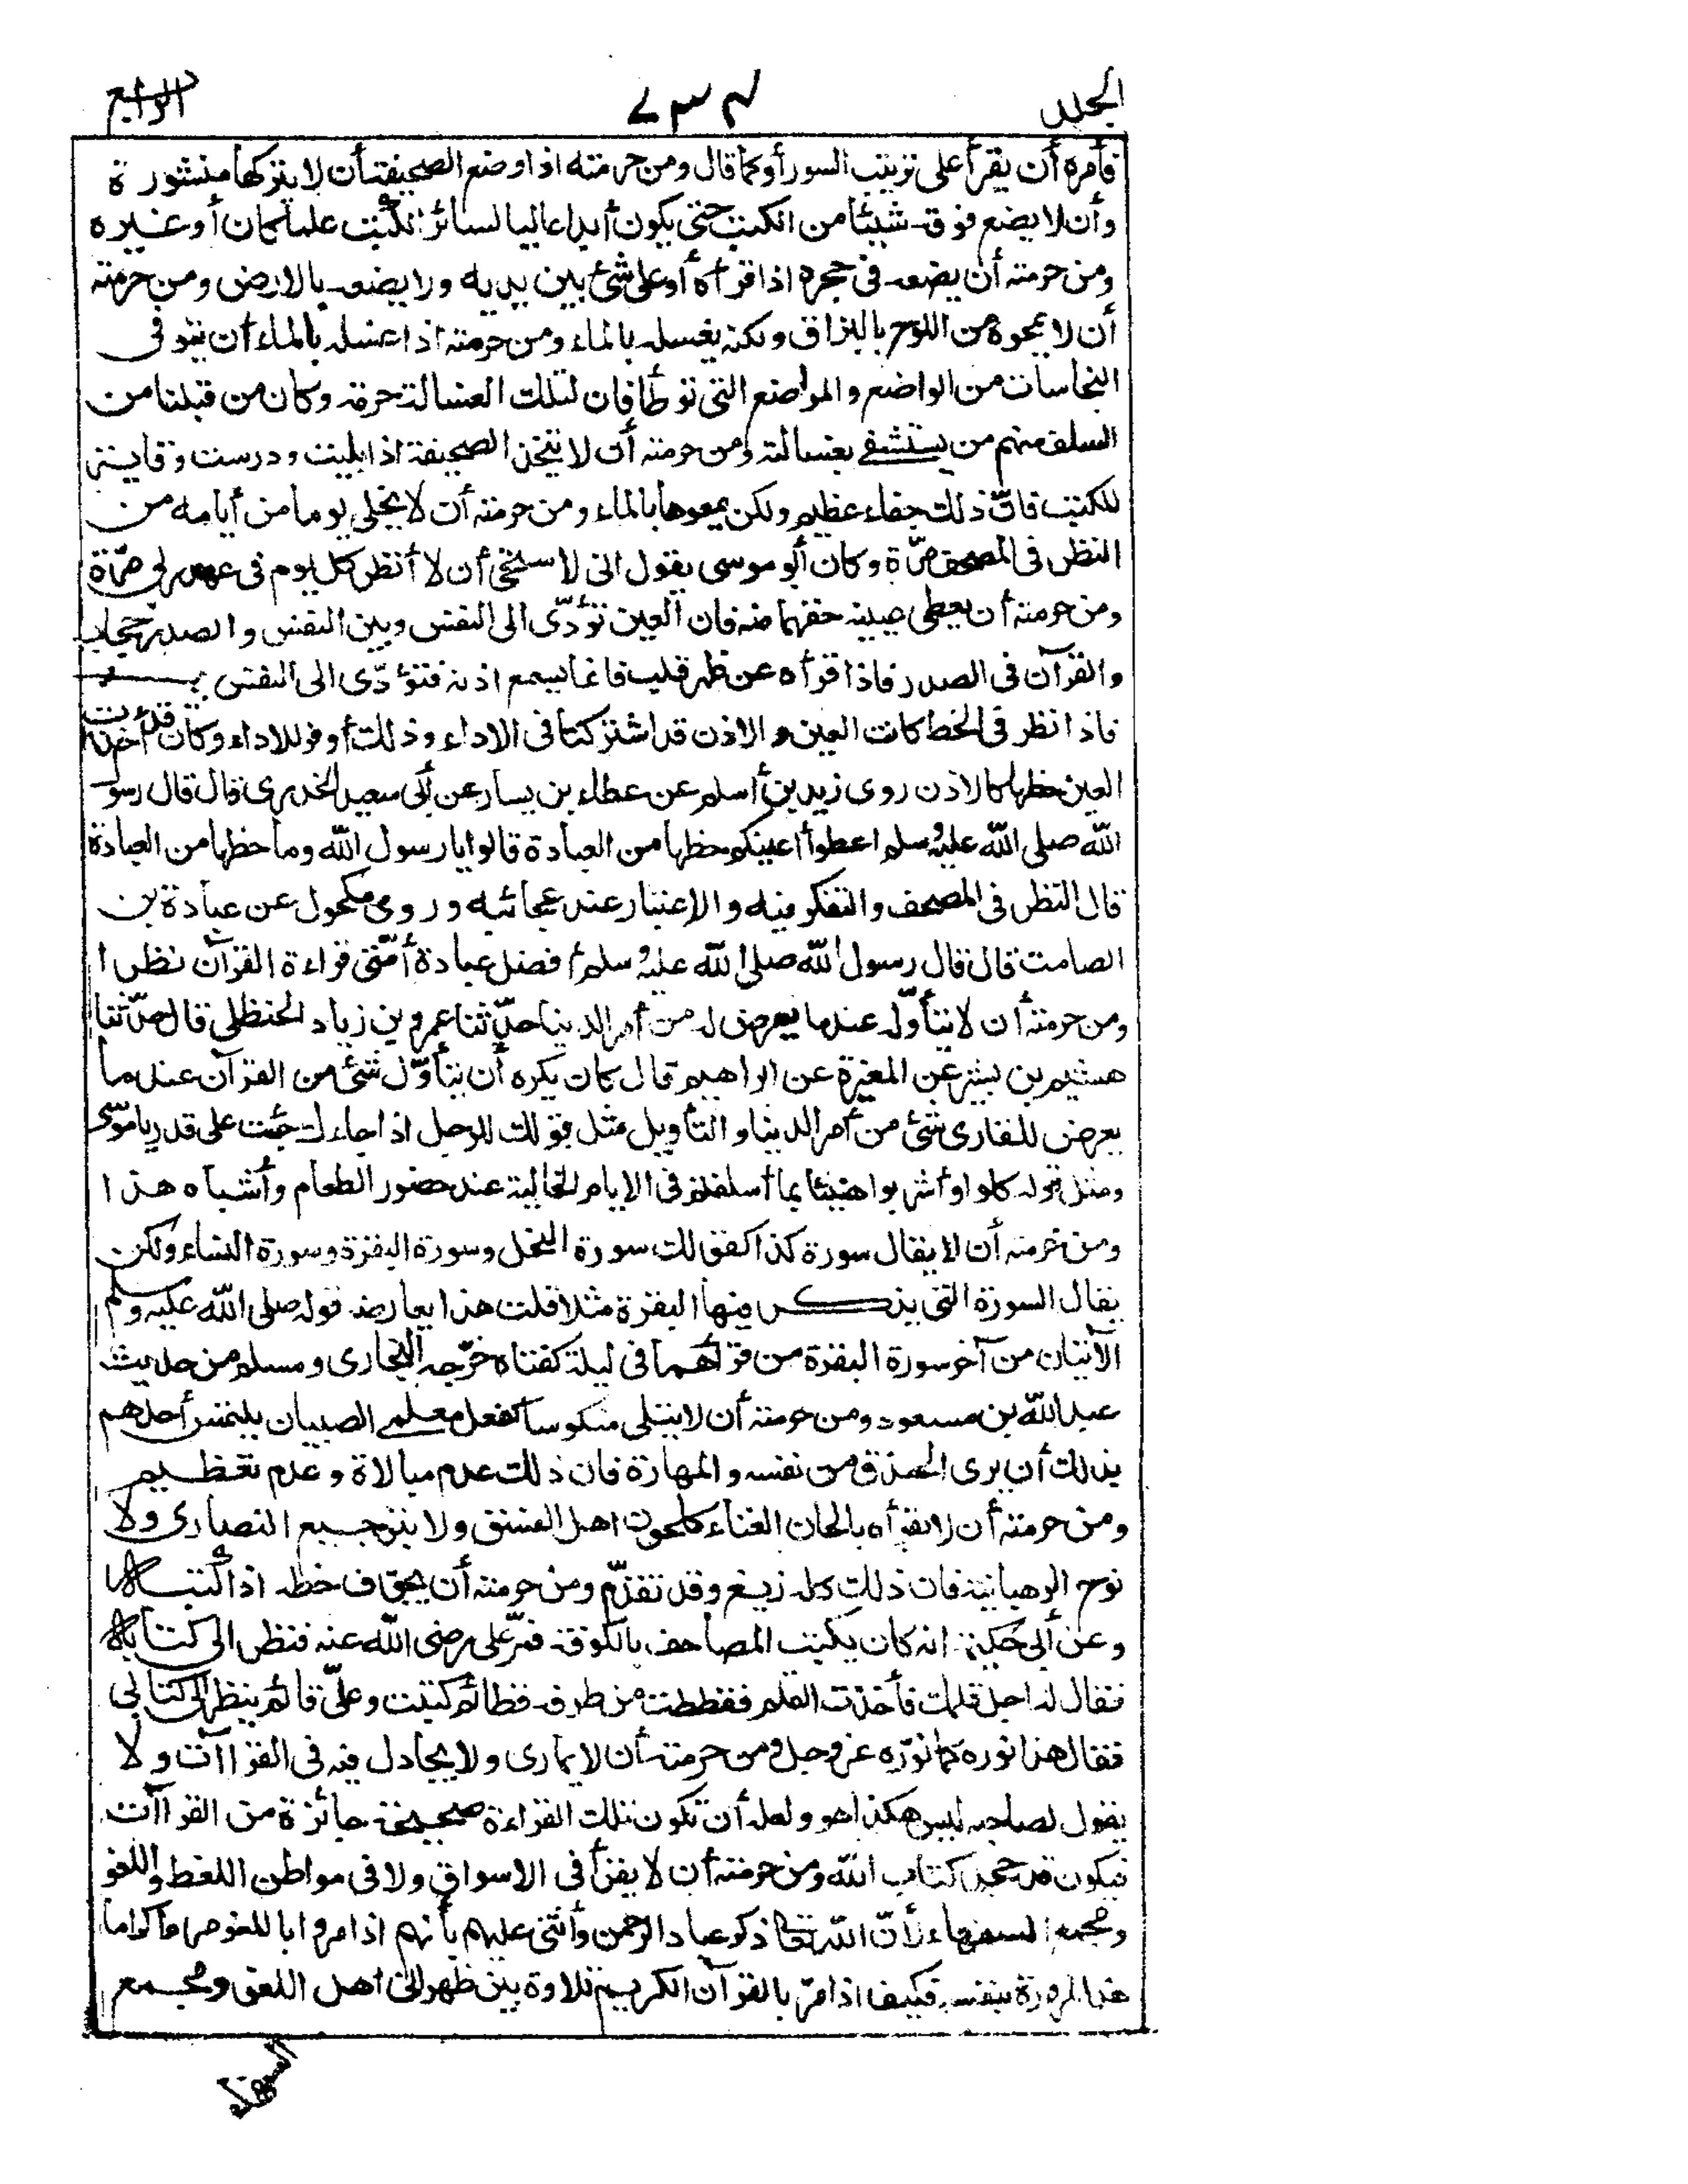 المجلد ٧٣٤ الرابع
فأمره أن يقرأ على ترتيب السور أو كما قال ومن حرمته اذا وضع الصحيفة أن لا يتركها منشورة
وأن لا يضع فوقه شيئا من الكتب حتى يكون أبدا عاليا لسائر الكتب علما كان أو غيره
ومن حرمته أن يضعه في حجره اذا قرأه أو على شئ بين يديه ولا يضعه بالارض ومن حرمته
أن لا يمحوه من اللوح بالبزاق ولكنه يغسله بالماء ومن حرمته اذا غسله بالماء أن يتوقى
النجاسات من الواضع والمواضع التي توطأ فان لتلك الغسالة حرمة وكان من قبلنا من
السلف منهم من يستشفي بغسالته ومن حرمته أن لا يتخذ الصحيفة اذا بليت ودرست وقاية
للكتب فانّ ذلك جفاء عظيم ولكن يمحوها بالماء ومن حرمته أن لا يخلي يوما من أيامه من
النظر في المصحف مرّة وكان أبو موسى يقول اني لاستحي أن لا أنظر كل يوم في عهد ربي مرّة
ومن حرمته أن يعطي عينيه حقهما منه فان العين تؤدّى الى النفس وبين النفس والصدر حجاب
والقرآن في الصدر فاذا قرأه عن ظهر قلب فانما يسمع اذنه فتؤدّى الى النفس
فاذا نظر في الخط كانت العين والاذن قد اشتركتا في الاداء وذلك أوفر للاداء وكان قد أخذت
العين حظها كالاذن روى زيد بن أسلم عن عطاء بن يسار عن أبي سعيد الخدري قال قال رسول
الله صلى الله عليه وسلم اعطوا أعينكم حظها من العبادة قالوا يا رسول الله وما حظها من العبادة
قال النظر في المصحف والتفكر فيه والاعتبار عند عجائبه وروى مكحول عن عبادة بن
الصامت قال قال رسول الله صلى الله عليه وسلم أفضل عبادة أمّتي قراءة القرآن نظرا
ومن حرمته أن لا يتأوّله عندما يعرض له من أمر الدنيا حدّثنا عمرو بن زياد الحنظلي قال حدّثنا
هشيم بن بشير عن المغيرة عن ابراهيم قال كان يكره أن يتأوّل شئ من القرآن عندما
يعرض للقارى شئ من أمر الدنيا والتأويل مثل قولك للرجل اذا جاءك جئت على قدر يا موسى
ومثل قوله كلوا واشربوا هنيئا بما أسلفتم في الايام الخالية عند حضور الطعام وأشباه هذا
ومن حرمته أن لا يقال سورة كذا كقولك سورة النحل وسورة البقرة وسورة النساء ولكن
يقال السورة التي يذكر فيها البقرة مثلا قلت هذا يعارضه قوله صلى الله عليه وسلم
الآيتان من آخر سورة البقرة من قرأهما في ليلة كفتاه خرّجه البخاري ومسلم من حديث
عبد الله بن مسعود ومن حرمته أن لا يتلى منكوسا كفعل معلمي الصبيان يلتمس أحدهم
بذلك أن يرى الحذق من نفسه والمهارة فان ذلك عدم مبالاة وعدم تعظيم
ومن حرمته أن لا يقرأه بالحان الغناء كلحون اهل الفسق ولا بترجيع النصارى ولا
نوح الرهبانية فان ذلك كله زيغ وقد تقدّم ومن حرمته أن يحقق خطه اذا كتبه
وعن أبي حكيمة انه كان يكتب المصاحف بالكوفة فمرّ على رضى الله عنه فنظر الى كتابته
فقال له اجل قلمك فأخذت القلم فقططته من طرفه قطا ثم كتبت وعليّ قائم ينظر الى كتابي
فقال هذا نوره كما نوّره عز وجل ومن حرمته أن لا يمارى ولا يجادل فيه في القراآت ولا
يقول لصاحبه ليس هكذا هو ولعله أن تكون تلك القراءة صحيحة جائزة من القراآت
فيكون قد جحد كتاب الله ومن حرمته أن لا يقرأ في الاسواق ولا في مواطن اللغط واللغو
ومجمع السفهاء لأنّ الله تعالى ذكر عباد الرحمن وأثنى عليهم بأنهم اذا مروا باللغو مروا كراما
هذا لمروره بنفسه فكيف اذا مرّ بالقرآن الكريم تلاوة بين ظهراني اهل اللغو ومجمع
السفهاء